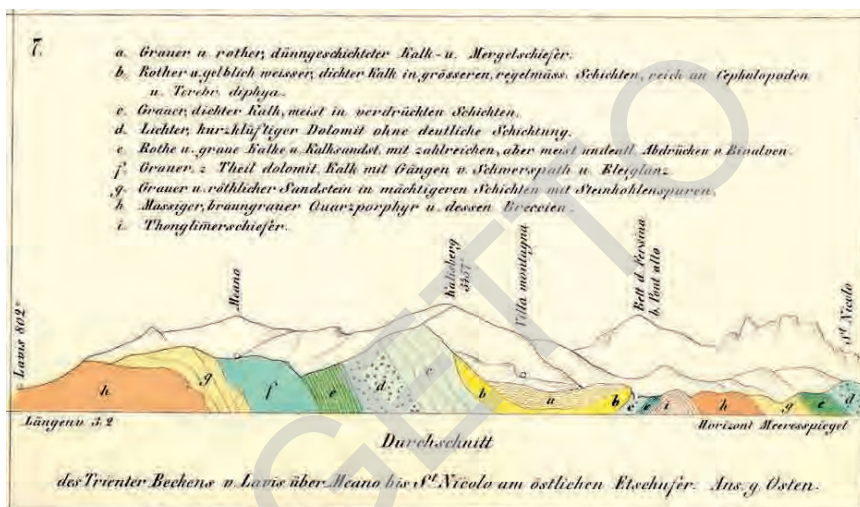 7.
a. Grauer u. rother, dünngeschichteter Kalk- u. Mergelschiefer.
b. Rother u. gelblich weisser, dichter Kalk in grösseren, regelmäss. Schichten, reich an Cephalopoden
u. Terebr. diphya.
c. Grauer, dichter Kalk, meist in verdrückten Schichten.
d. Lichter, kurzklüftiger Dolomit ohne deutliche Schichtung.
e Rothe u. graue Kalke u. Kalksandst. mit zahlreichen, aber meist undeutl. Abdrücken v. Bivalven.
f. Grauer, z Theil dolomit. Kalk mit Gängen v. Schwerspath u. Bleiglanz.
g. Grauer u. röthlicher Sandstein in mächtigeren Schichten mit Steinkohlenspuren.
h Massiger, braungrauer Quarzporphyr u. dessen Breccien.
i. Thonglimerschiefer.
Lavis 802°
Meano
Kalisberg
3457°
Villa montagna
Bett d. Fersina
b. Pont alto
St Nicolo
h g f e d c b a b c e i h g e d
Längenv 3:2
Horizont Meeresspiegel
Durchschnitt
des Trienter Beckens v. Lavis über Meano bis St Nicolo am östlichen Etschufer. Ans. g. Osten.
GETTO